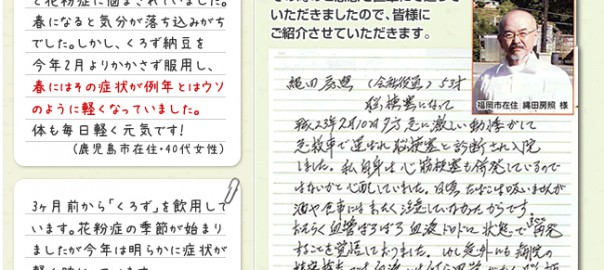 春になると気分が落ち込みがち
でした。しかし、くろず納豆を
今年2月よりかかさず服用し、
春にはその症状が例年とはウソ
のように軽くなっていました。
体も毎日軽く元気です!
(鹿児島市在住・40代女性)
3ヶ月前から「くろず」を飲用して
います。花粉症の季節が始まり
ましたが今年は明らかに症状が
いただきましたので、皆様に
ご紹介させていただきます。
福岡市在住 縄田房照 様
縄田房照 (会社役員) 53才
脳梗塞になって
平成23年2月10日夕方急に激しい動悸がして
急救車で運ばれ脳梗塞と診断され入院
しました。私自身は心筋梗塞も併発しているので
はないかと心配していました。日頃たばこは吸いませんが
酒や食事にはまったく注意していなかったからです。
おそらく血管ぼろぼろ血液ドロドロ状態で再発
することを覚悟しておりました。しかし意外にも病院の